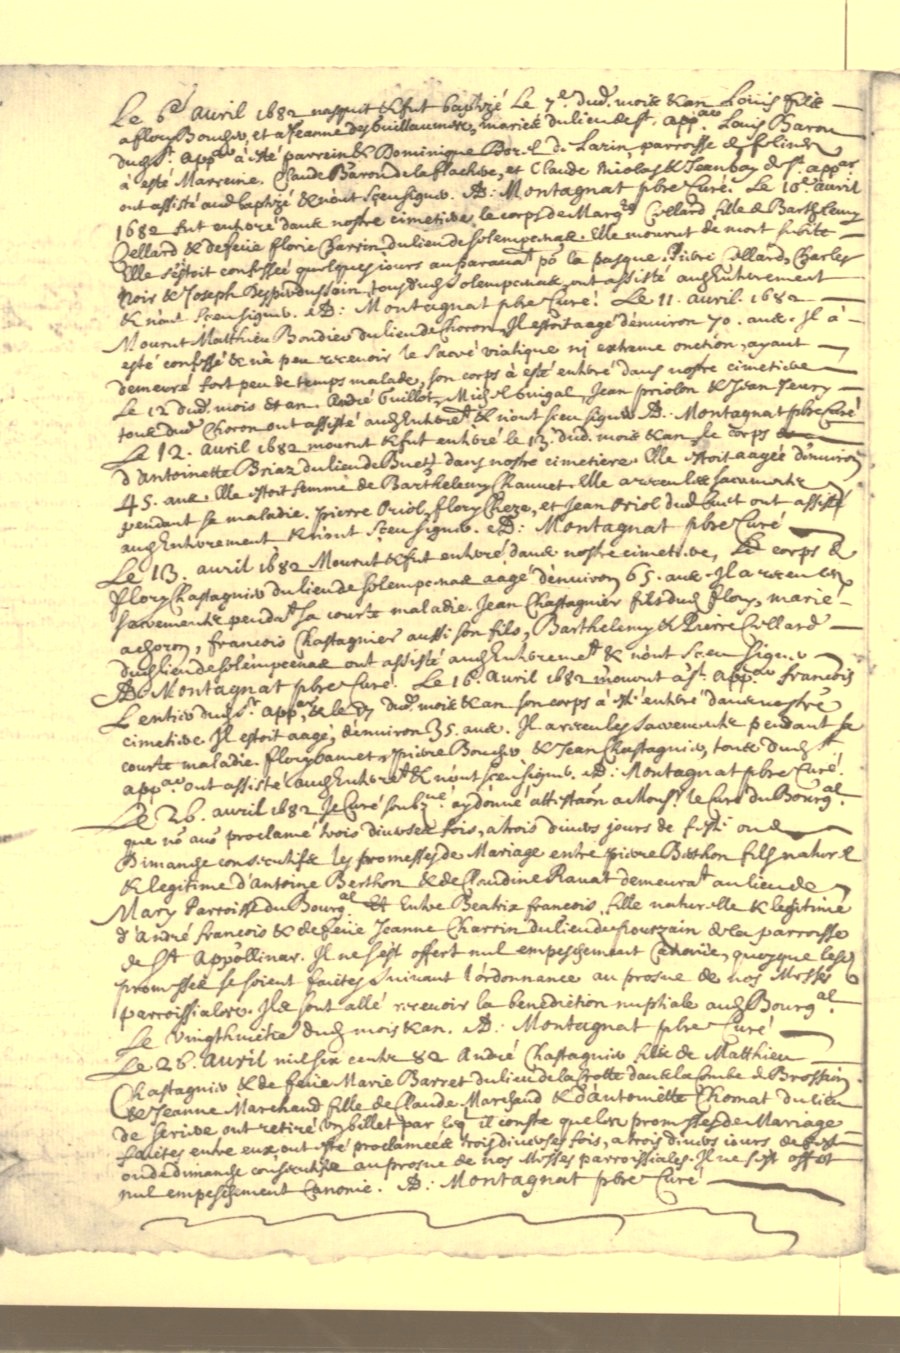 Le 6e Avril 1682 nasquit & fut baptizé Le 7e. dud. mois & an Louis fils
a flory Bouchet, et a Jeanne des Guillaumes, mariés du lieu de St. Appar Louis Baron
dud St. Appar à esté parrein & Dominique de Larin parroisse de
à esté Marreine. Claude Baron de la flachere, et Claude Nicolas & de St. appar
ont assisté aud baptizé & n'ont sceu signer. AD: Montagnat pbre Curé. Le 10e avril
1682 fut enterré dans nostre cimetiere le corps de Margte Cellard fille de Barthlemy
Cellard & de feüe florie Charrin du lieu de solempcenas. Elle mourut de mort subite
Elle s'estoit confessée quelques jours auparavat pō la pasque. Pierre Cellard, Charles
Noir & Joseph tous dud Solempcenas, ont assisté aud Enterrement
& n'ont sceu signer. AD: Montagnat pbre Curé. Le 11. avril. 1682
Mourut Matthieu Bondieu du lieu de Choron, Il estoit aagé d'enuiron 70. ans. Il à
esté confessé & n'à peu receuoir le sacré viatique nj extreme onction, ayant
demeuré fort peu de temps malade, son corps à esté enterré dans nostre cimetiere
Le 12 dud. mois et an. André Guillot, Michel Jean priolon & Jean
tous dud Choron ont assisté aud Enterret & n'ont sceu signer AD: Montagnat pbre Curé
Le 12. Avril 1682 mourut & fut enterré le 13. dud. mois & an le corps
d'Antoinette Briaz du lieu de Buet dans nostre cimetiere. Elle estoit aagée d'enuiron
45. ans. Elle estoit femme de Barthelemy Chauuet. Elle a receu les sacrements
pendant sa maladie. pierre Oriol, flory Cheze, et Jean Oriol dud Buet ont assisté
aud Enterrement & n'ont sceu signer. AD: Montagnat pbre Curé
Le 13. avril 1682 Mourut & fut enterré dans nostre cimetiere, Le corps de
flory Chastagnier du lieu de solempcenas aagé d'enuiron 65. ans. Il a receu les
sacrements pendat sa courte maladie. Jean Chastagnier fils dud flory, marié
a choron, francois Chastagnier aussi son fils, Barthelemy & Pierre Cellard
dud lieu de solempcenas ont assisté aud Enterremet & n'ont sceu signer
AD: Montagnat pbre Curé. Le 16. Avril 1682 mourut à St. Appar francois
Lentier dud St. appar, & le 17 dud. mois & an son corps à esté enterré dans nostre
cimetiere. Il estoit aagé, d'enuiron 35. ans. Il a receu les sacrements pendant sa
courte maladie. flory pierre Bouchet & Jean Chastagnier, tous dud St
appar. ont assisté aud Enterret & n'ont sceu signer. AD: Montagnat pbre Curé.
Le 26. avril 1682 Je Curé soubzné ay donné attestaōn a Monsr. le Curé du Bourgal.
que nō auō proclamé trois diuerses fois, a trois diuers jours de feste ou de
Dimanche consecutifs les promesses de Mariage entre pierre Berthon fils naturel
& legitime d'Antoine Berthon & de Claudine Rauat demeurat au lieu de
Mary Parroisse du Bourgal. Et Entre Beatrix francois fille naturelle & legitime
d'André francois & de feüe Jeanne Charrin du lieu du de la parroisse
de St. Appollinar. Il ne s'est offert nul empeschement Canonic, quoyque les
promesses se soient faites suiuant l'ordonnance au prosne de nos Messes
parroissiales. Ils sont allé receuoir la benediction nuptiale aud Bourgal.
Le vingthuitie dud mois & an. AD: Montagnat pbre Curé
Le 26. Avril mil six cents 82 André Chastagnier fils de Matthieu
Chastagnier & de feüe Marie Barret du lieu de la Grotte dans la Combe de Brossin.
& Jeanne Marchand fille de Claude Marchand & d'Antoinette Chomat du lieu
de Seriue ont retiré vn billet par leql il conste que leurs promesses de Mariage
faites entre eux, ont esté proclamées trois diuerses fois, a trois diuers jours de feste
ou de dimanche consecutifs au prosne de nos Messes parroissiales. Il ne s'est offert
nul empeschement Canonic. AD: Montagnat pbre Curé